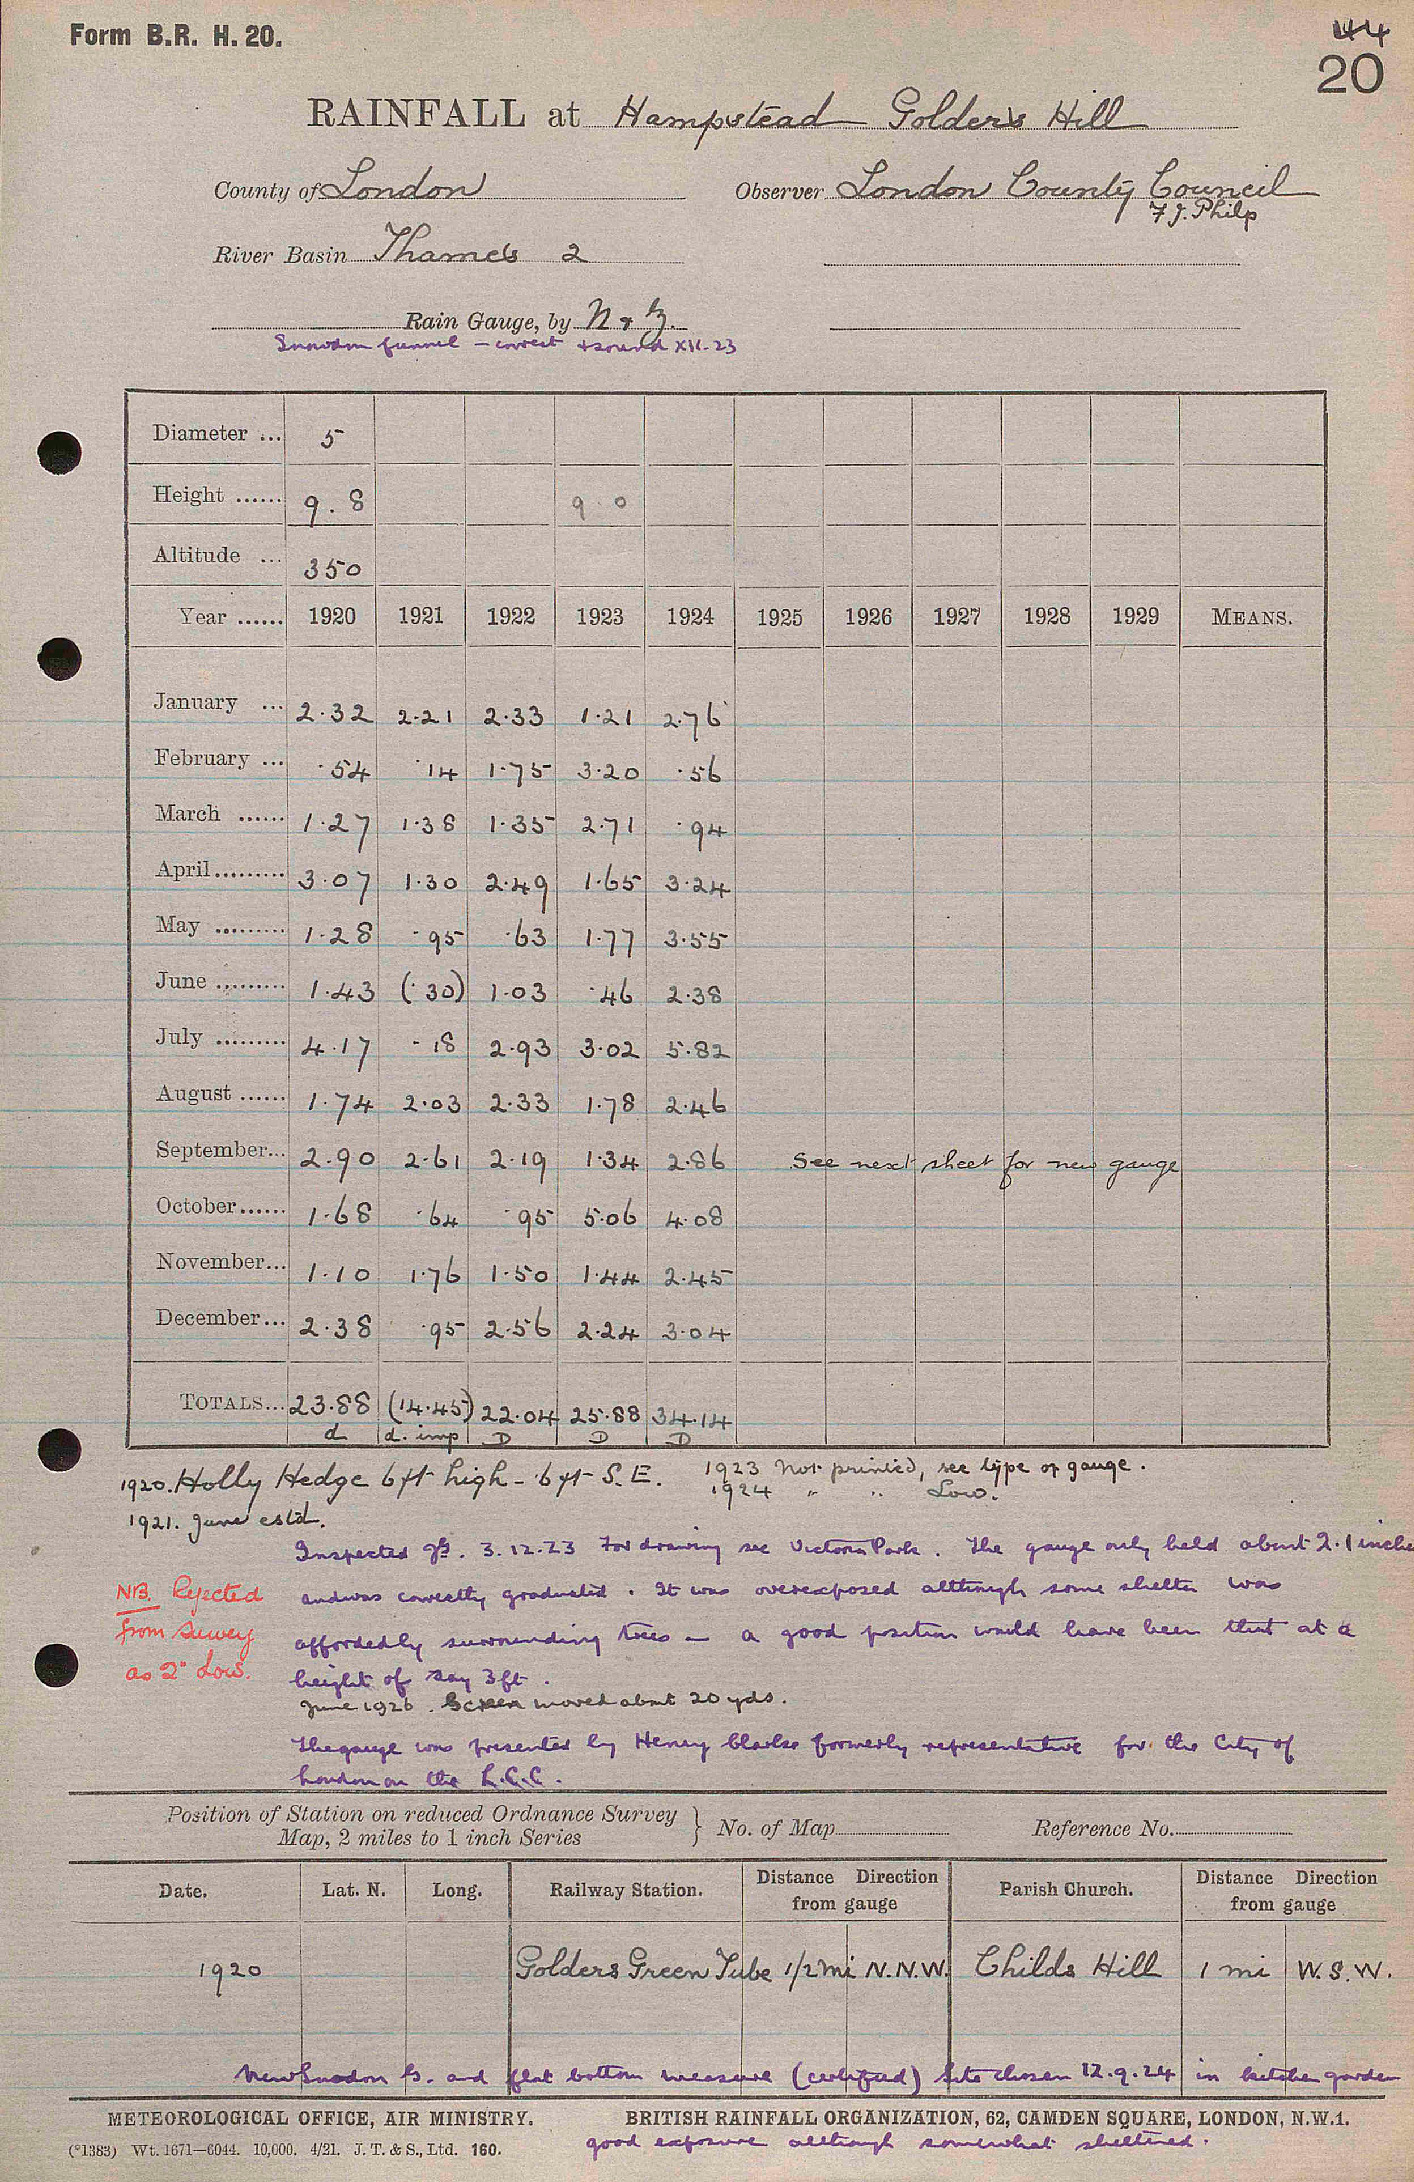 Form B.R. H. 20.
44
20
RAINFALL at Hampstead Golders Hill
County of London Observer London County Council
F J. Philp
River Basin Thames 2
Rain Gauge, by N & Z.
Snowdon funnel – correct & sound XII.23
Diameter ... 5
Height ...... 9.8 9.0
Altitude ... 350
Year ...... 1920 1921 1922 1923 1924 1925 1926 1927 1928 1929 MEANS.
January ... 2.32 2.21 2.33 1.21 2.76
February ... .54 .14 1.75 3.20 .56
March ...... 1.27 1.38 1.35 2.71 .94
April ......... 3.07 1.30 2.49 1.65 3.24
May ......... 1.28 .95 .63 1.77 3.55
June ......... 1.43 (.30) 1.03 .46 2.38
July ......... 4.17 .18 2.93 3.02 5.82
August ...... 1.74 2.03 2.33 1.78 2.46
September... 2.90 2.61 2.19 1.34 2.86 See next sheet for new gauge
October...... 1.68 .64 .95 5.06 4.08
November... 1.10 1.76 1.50 1.44 2.45
December... 2.38 .95 2.56 2.24 3.04
TOTALS... 23.88 (14.45) 22.04 25.88 34.14
d d. imp D D D
1920. Holly Hedge 6ft high – 6 ft S.E. 1923 Not printed, see type of gauge.
1924 " " Low.
1921. June estd.
Inspected 3.12.23 For drawing see Victoria Park. The gauge only held about 2.1 inche
and was correctly graduated. It was overexposed although some shelter was
afforded by surrounding trees – a good position would have been that at a
height of say 3ft.
NB. Rejected
from Survey
as 2" Low.
June 1926. Screen moved about 20 yds.
The gauge was presented by Henry Clarke formerly representative for the City of
London on the L.C.C.
Position of Station on reduced Ordnance Survey
Map, 2 miles to 1 inch Series } No. of Map Reference No.
Date. Lat. N. Long. Railway Station. Distance Direction from gauge Parish Church. Distance Direction from gauge
1920 Golders Green Tube 1/2 mi N.N.W. Childs Hill 1 mi W.S.W.
New Snodon G. and flat bottom measure (certified) Site chosen 12.9.24 in kitchen garden
METEOROLOGICAL OFFICE, AIR MINISTRY. BRITISH RAINFALL ORGANIZATION, 62, CAMDEN SQUARE, LONDON, N.W.1.
(*1383) Wt. 1671—6044. 10,000. 4/21. J. T. & S., Ltd. 160.
good exposure although somewhat sheltered.